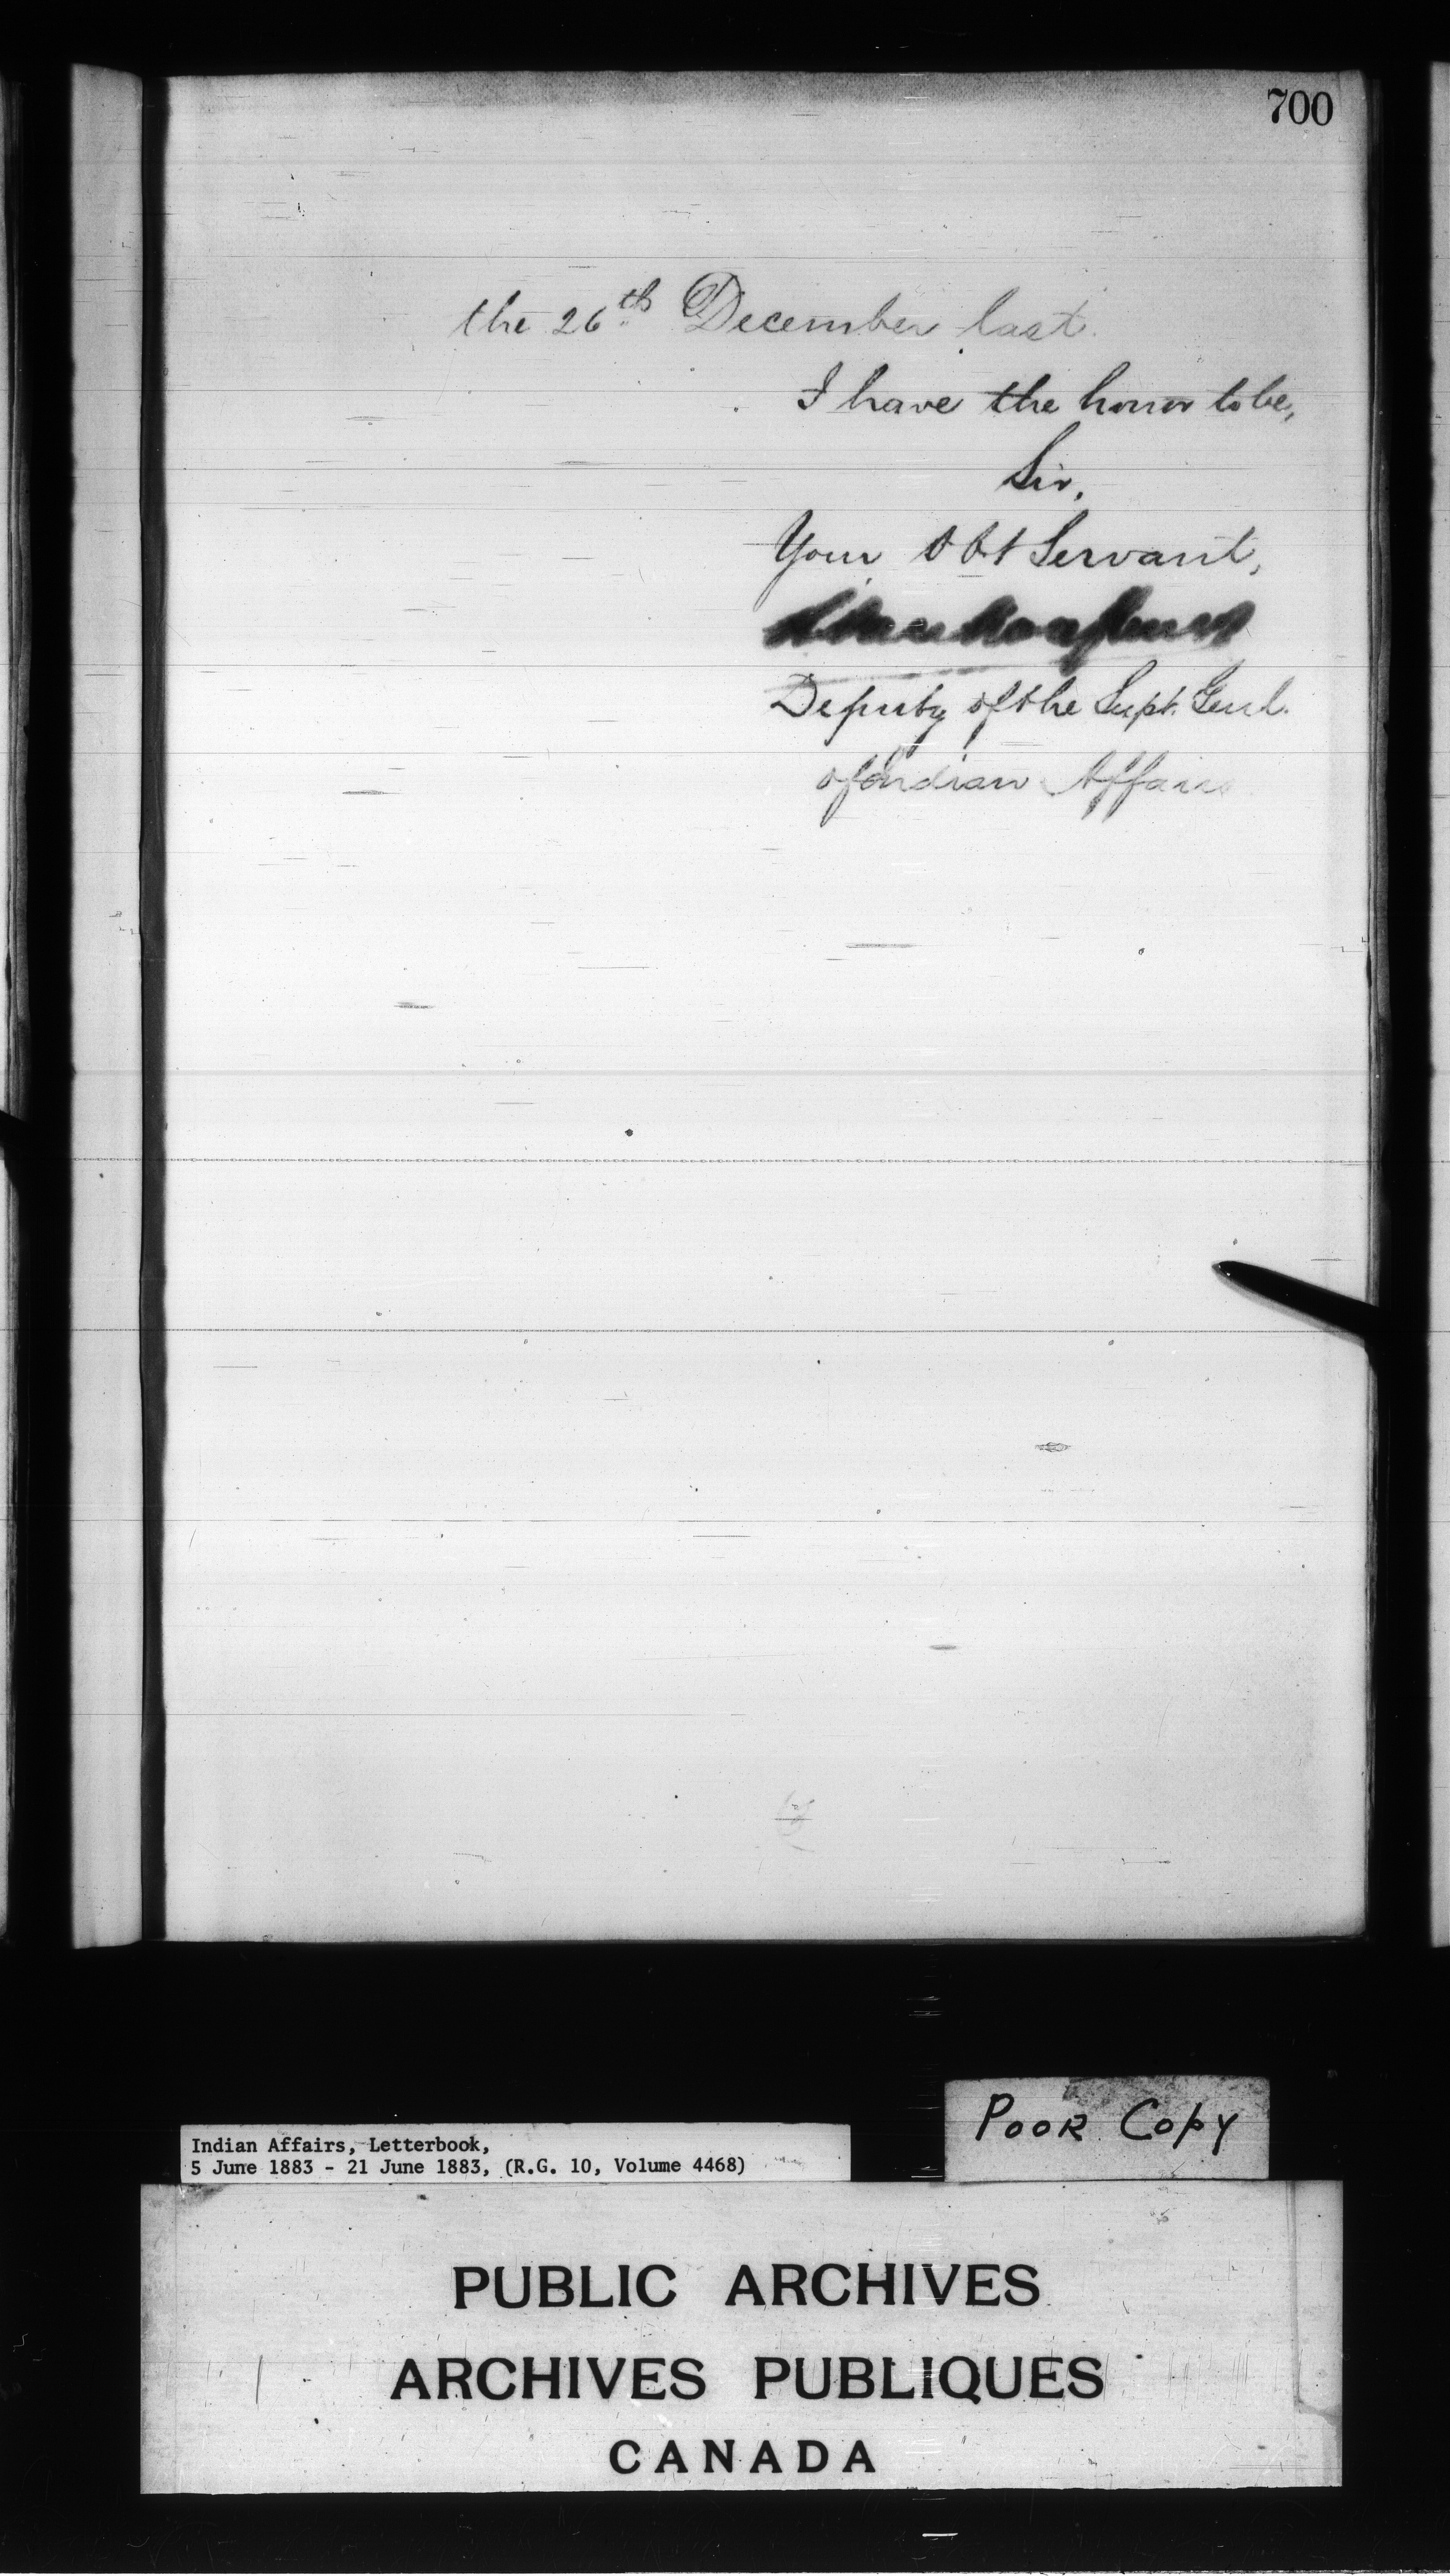 700
the 26th December last.
I have the honor to be,
Sir,
Your Obt Servant,
Deputy of the Supt. Genl.
of Indian Affairs
Poor Copy
Indian Affairs, Letterbook,
5 June 1883 - 21 June 1883, (R.G. 10, Volume 4468)
PUBLIC ARCHIVES
ARCHIVES PUBLIQUES
CANADA